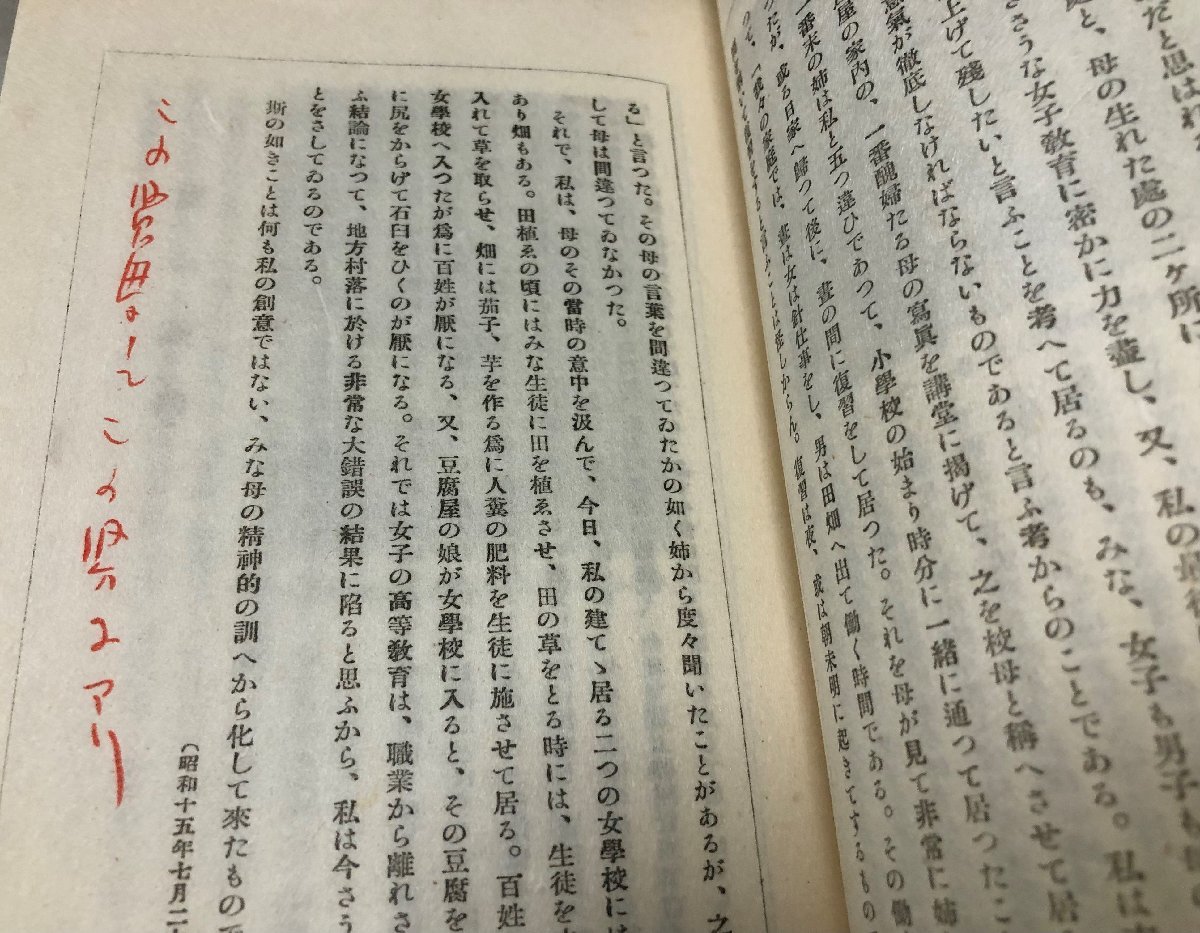 だと思はれ
處と、母の生れた處の二ケ所に
さうな女子敎育に密かに力を盡し、又、私の最後
上げて殘したいと言ふことを考へて居るのも、みな、女子も男子
意氣が徹底しなければならないものであると言ふ考からのことである。私は
屋の家內の、一番醜婦たる母の寫眞を講堂に揭げて、之を校母と稱へさせて居
一番末の姉は私と五つ違ひであつて、小學校の始まり時分に一緖に通つて居つたこ
たが、或る日家へ歸つて後に、晝の間に復習をして居つた。それを母が見て非常に姉
つて、「我々の家庭では、晝は女は針仕事をし、男は田畑へ出て働く時間である。その働
ことは怪しからん。復習は夜、或は朝未明に起きてするもの
る」と言つた。その母の言葉を間違つてゐたかの如く姉から度々聞いたことがあるが、之
して母は間違つてゐなかつた。
それで、私は、母のその當時の意中を汲んで、今日、私の建てゝ居る二つの女學校には
あり畑もある。田植ゑの頃にはみな生徒に田を植ゑさせ、田の草をとる時には、生徒を
入れて草を取らせ、畑には茄子、芋を作る爲に人糞の肥料を生徒に施させて居る。百姓
女學校へ入つたが爲に百姓が厭になる、又、豆腐屋の娘が女學校に入ると、その豆腐を
に尻をからげて石臼をひくのが厭になる。それでは女子の高等敎育は、職業から離れさ
ふ結論になつて、地方村落に於ける非常な大錯誤の結果に陷ると思ふから、私は今さう
とをさしてゐるのである。
斯の如きことは何も私の創意ではない、みな母の精神的の訓へから化して來たもので
（昭和十五年七月二
この賢母ありてこの賢人アリ